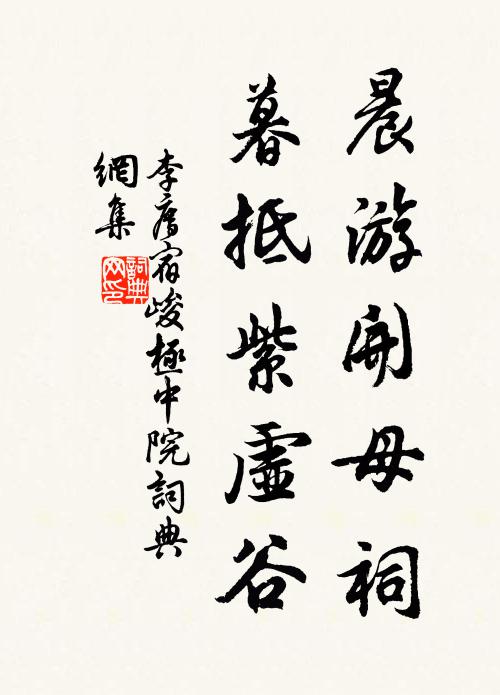 晨游開母祠
暮抵紫虛谷
李廌宿峻極中院詞典
網集
詞典網印